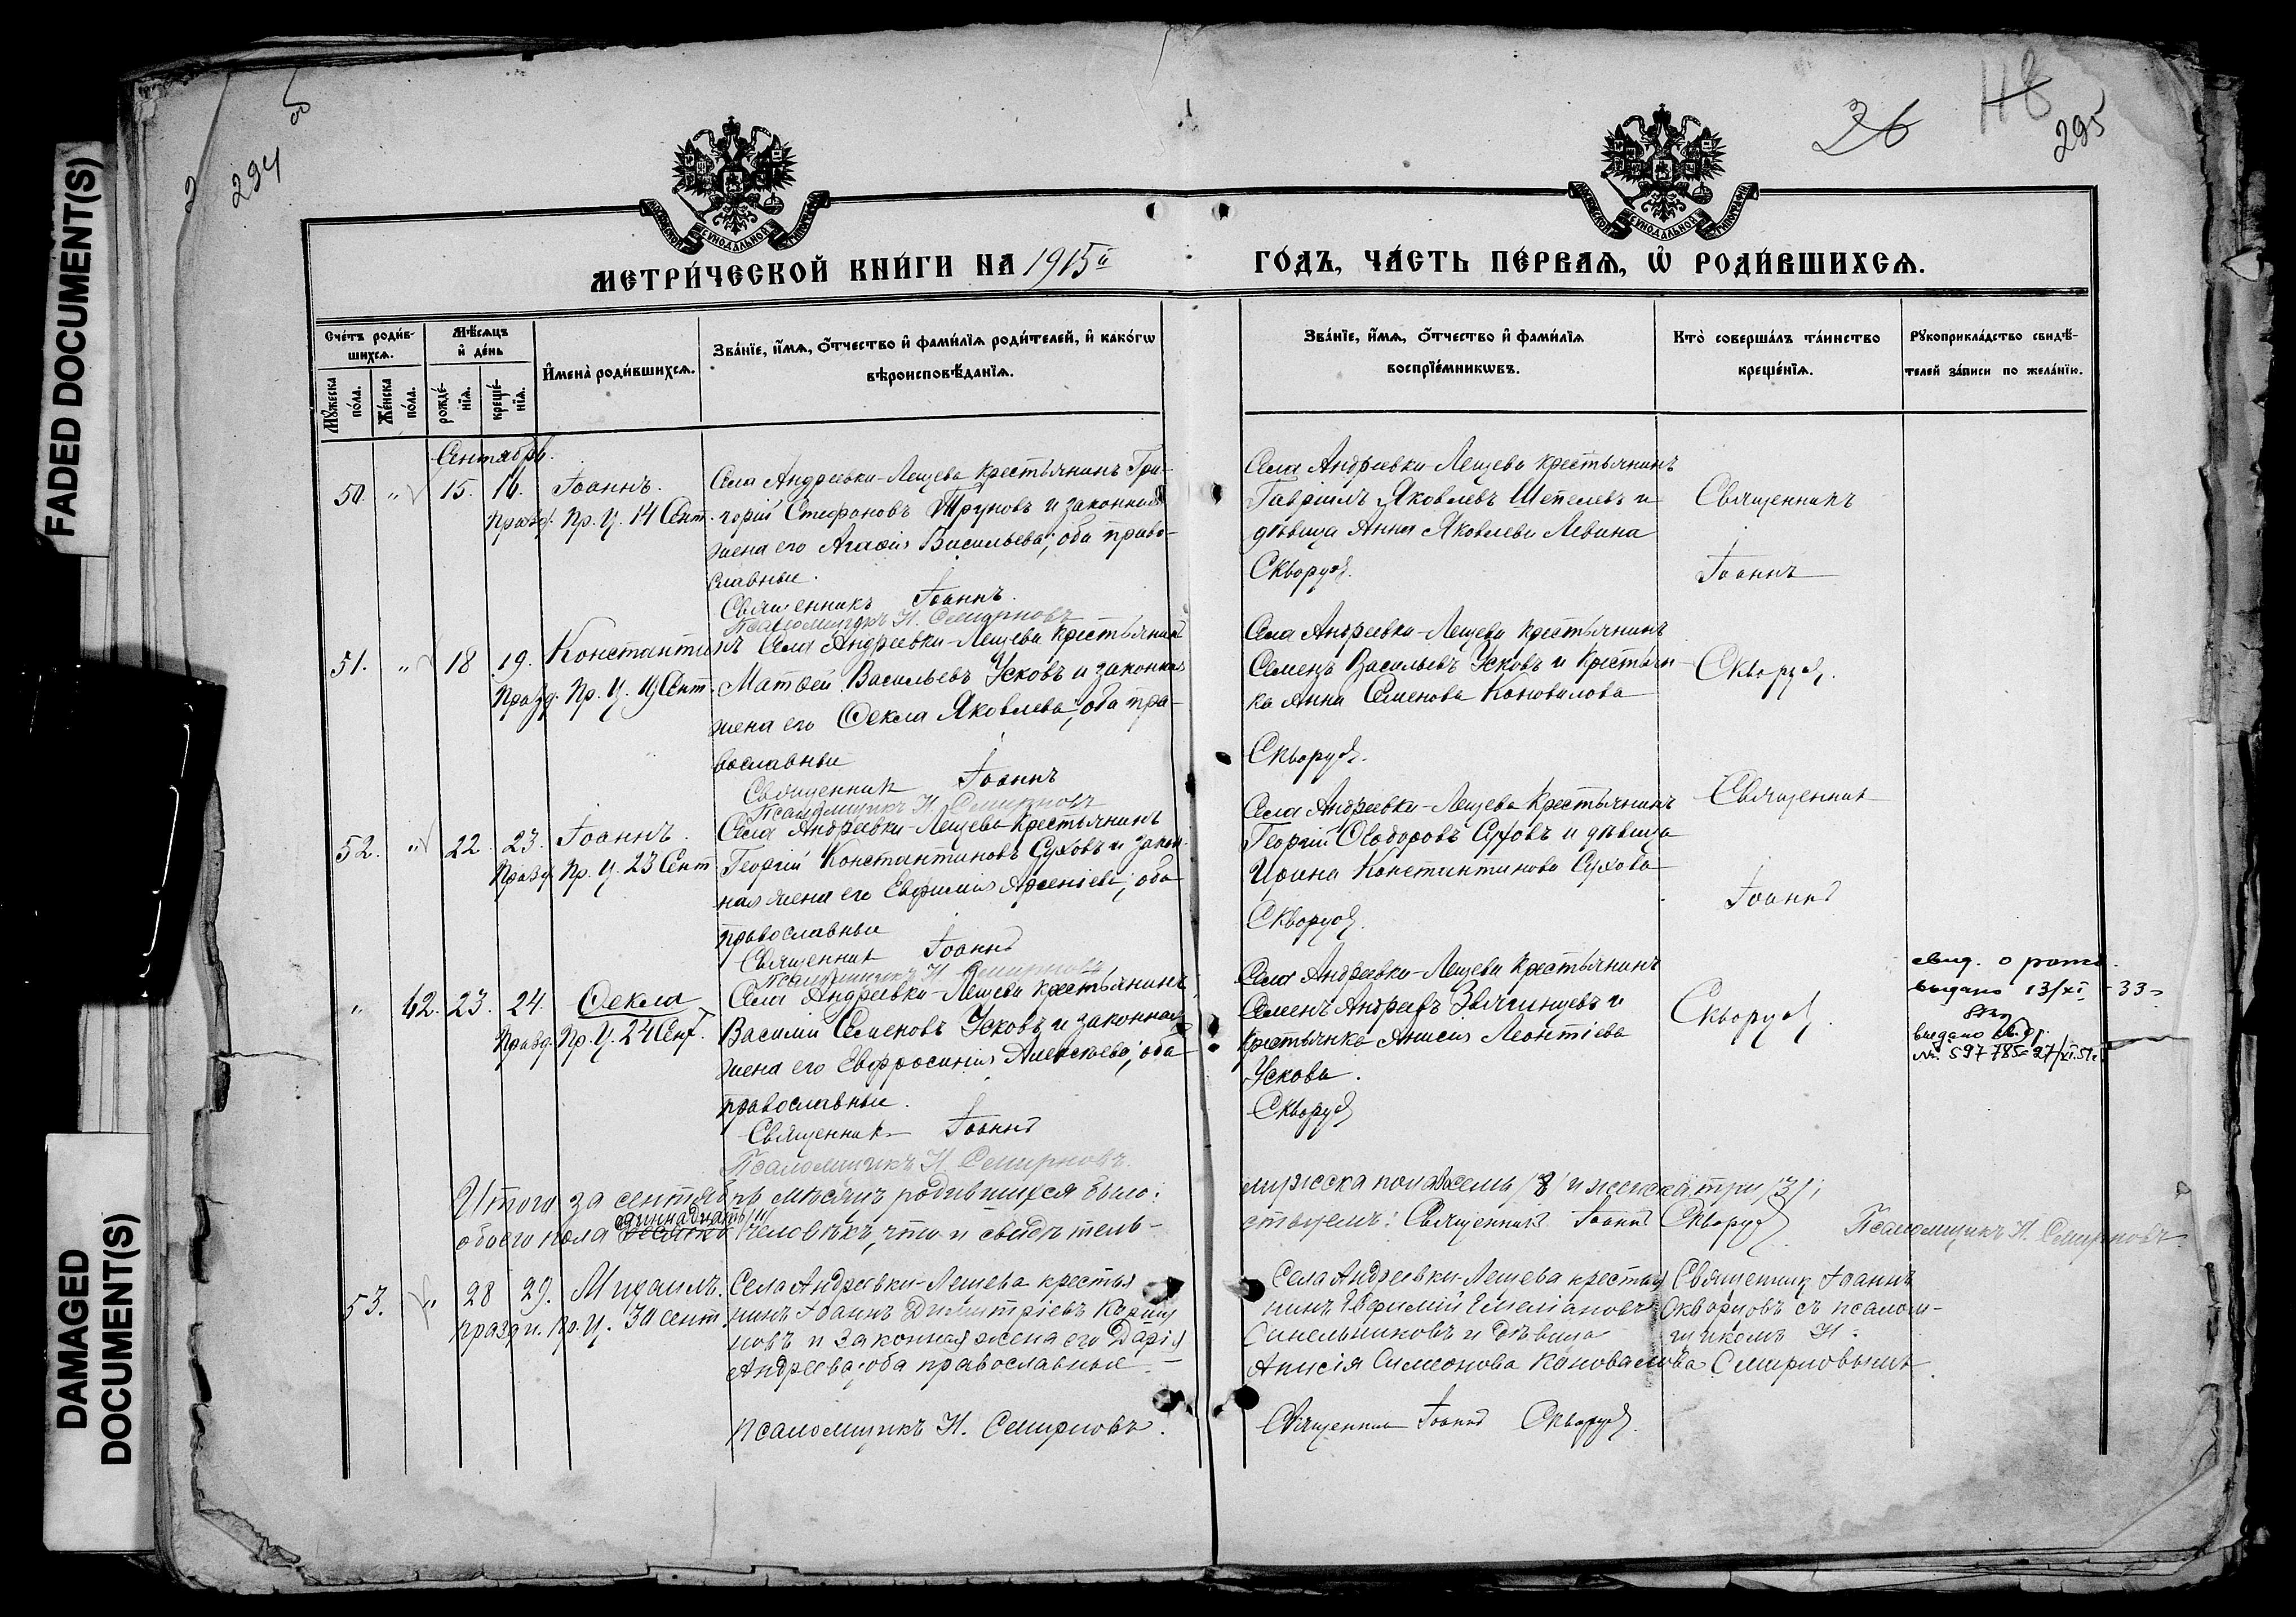 FADED DOCUMENT(S)
DAMAGED
DOCUMENT(S)
294
295
МЕТРИ́ЧЕСКОЙ КНИ́ГИ НА 1915й
ГО́ДЪ, ЧА́СТЬ ПЕ́РВАѦ, Ѡ҆ РОДИ́ВШИХСѦ.
Сче́тъ роди́в-
шихсѧ.
Мꙋ́жеска
по́ла.
Же́нска
по́ла.
Мѣ́сѧцъ
и҆ де́нь
рожде́-
нїѧ.
креще́-
нїѧ.
И҆мена̀ роди́вшихсѧ.
Зва́нїе, и҆́мѧ, ѻ҆́тчество и҆ фами́лїѧ роди́телей, и҆ како́гѡ
вѣроисповѣ́данїѧ.
Зва́нїе, и҆́мѧ, ѻ҆́тчество и҆ фами́лїѧ
воспрїе́мникѡвъ.
Кто̀ соверша́лъ та́инство
креще́нїѧ.
Рꙋкоприкла́дство свидѣ́-
телей за́писи по жела́нїю.
Сентябрь.
50. " 15. 16. Іоаннъ.
Празд. Пр. Ц. 14 Сент.
Села Андреевки-Лещева крестьянинъ Гри-
горій Стефановъ Труновъ и законная
жена его Агаѳія Васильева; оба право-
славные.
Священникъ Іоаннъ
Псаломщикъ Н. Смирновъ
Села Андреевки-Лещева крестьянинъ
Гавріилъ Яковлевъ Шепелевъ и
дѣвица Анна Яковлева Левина
Скворцов
Священникъ
Іоаннъ
51. " 18 19. Константинъ
Празд. Пр. Ц. 19 Сент.
Села Андреевки-Лещева крестьянинъ
Матѳей Васильевъ Усковъ и законная
жена его Ѳекла Яковлева; оба пра-
вославные
Священникъ Іоаннъ
Псаломщикъ Н. Смирновъ
Села Андреевки-Лещева крестьянинъ
Семенъ Васильевъ Усковъ и крестьян-
ка Анна Семенова Коновалова
Скворцов
Скворцов
52. " 22. 23. Іоаннъ.
Празд. Пр. Ц. 23 Сент.
Села Андреевки-Лещева крестьянинъ
Георгій Константиновъ Суховъ и закон-
ная жена его Евфимія Арсеніева; оба
православные
Священникъ Іоаннъ
Псаломщикъ Н. Смирновъ
Села Андреевки-Лещева крестьянинъ
Георгій Ѳеодоровъ Суховъ и дѣвица
Ирина Константинова Сухова
Скворцов
Священникъ
Іоаннъ
" 62. 23. 24. Ѳекла
Празд. Пр. Ц. 24 Сент.
Села Андреевки-Лещева крестьянинъ
Василій Семеновъ Усковъ и законная
жена его Евфросинія Алексѣева; оба
православные.
Священникъ Іоаннъ
Псаломщикъ Н. Смирновъ.
Села Андреевки-Лещева крестьянинъ
Семенъ Андреевъ Звягинцевъ и
крестьянка Анисія Леонтіева
Ускова.
Скворцов
Скворцов
свид. о рожд.
выдано 13/XI - 33 г
выдано
№ 597785 = 27/XI.51 г
Итого за сентябрь мѣсяцъ родившихся было:
мужеска пола восемь /8/ и женска три /3/;
одиннадцать /11/
обоего пола человѣкъ, что и свидѣтель-
ствуемъ: Священникъ Іоаннъ Скворцов
Псаломщикъ Н. Смирновъ
53. " 28 29. Михаилъ.
Праздн. Пр. Ц. 30 Сент.
Села Андреевки-Лещева крестья
нинъ Іоаннъ Димитріевъ
новъ и законная жена его Дарія
Андреева; оба православные
Псаломщикъ Н. Смирновъ.
Села Андреевки-Лещева крестья
нинъ Евфимій Емеліановъ
Синельниковъ и дѣвица
Анисія Симеонова Коновалова
Священникъ Іоаннъ Скворцов
Священник Іоаннъ
Скворцовъ съ псалом-
щикомъ Н.
Смирновымъ.